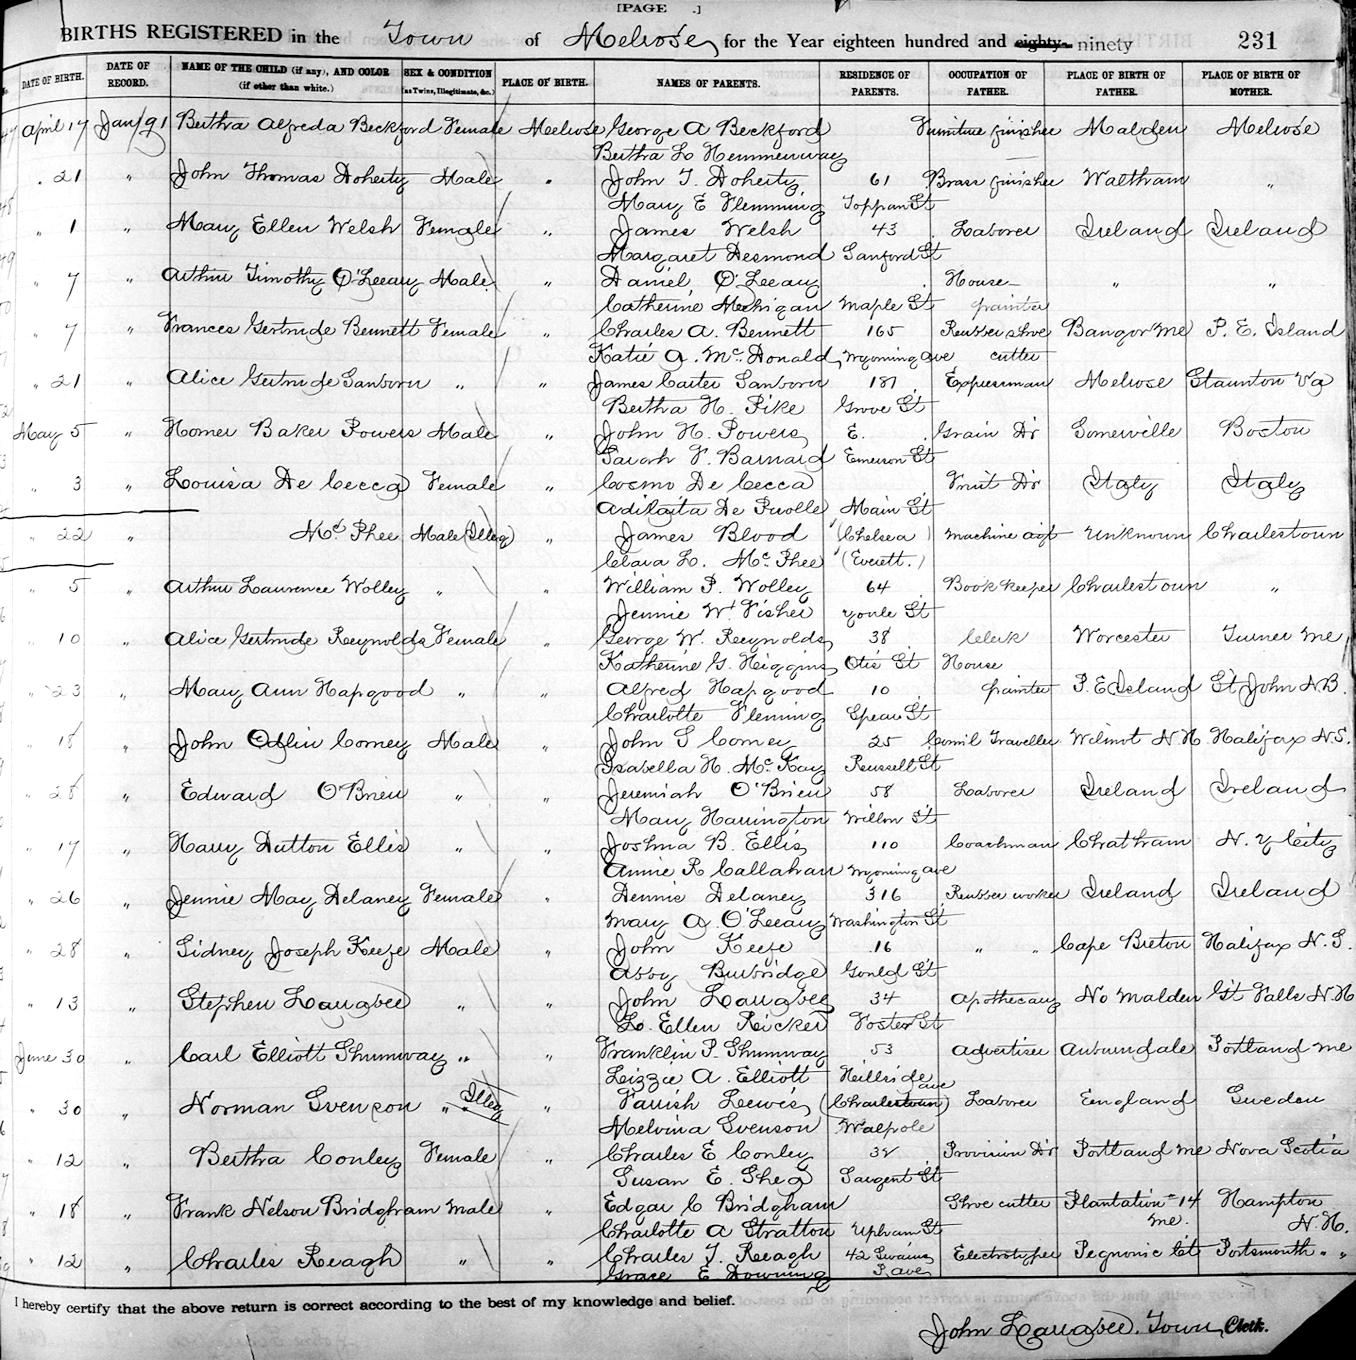 [PAGE .]
BIRTHS REGISTERED in the Town of Melrose, for the Year eighteen hundred and eighty- ninety 231
DATE OF BIRTH. DATE OF RECORD. NAME OF THE CHILD (if any), AND COLOR (if other than white.) SEX & CONDITION (as Twins, Illegitimate, &c.) PLACE OF BIRTH. NAMES OF PARENTS. RESIDENCE OF PARENTS. OCCUPATION OF FATHER. PLACE OF BIRTH OF FATHER. PLACE OF BIRTH OF MOTHER.
April 17 Jan/91 Bertha Alfreda Beckford Female Melrose George A Beckford Furniture finisher Malden Melrose
Bertha L Hemmenway
" 21 " John Thomas Doherty Male " John T. Doherty 61 Brass finisher Waltham "
Mary E Flemming Toppan St
" 1 " Mary Ellen Welsh Female " James Welsh 43 Laborer Ireland Ireland
Margaret Desmond Sanford St
" 7 " Arthur Timothy O'Leary Male " Daniel O'Leary House- " "
Catherine Mehigan Maple St painter
" 7 " Frances Gertrude Bennett Female " Charles A. Bennett 165 Rubber shoe Bangor Me P. E. Island
Katie A. McDonald Wyoming ave cutter
" 21 " Alice Gertrude Sanborn " " James Carter Sanborn 187 Expressman Melrose Staunton Va
Bertha H. Pike Grove St
May 5 " Homer Baker Powers Male " John H. Powers E. Grain Dr Somerville Boston
Sarah F. Barnard Emerson St
" 3 " Louisa De Cecca Female " Cosmo De Cecca Fruit Dr Italy Italy
De Main St
" 22 " McPhee Male (Illeg) " James Blood (Chelsea) Machine agt Unknown Charlestown
Clara L. McPhee (Everett.)
" 5 " Arthur Laurence Wolley " " William P. Wolley 64 Book keeper Charlestown "
Jennie W. Fisher Youle St
" 10 " Alice Gertrude Reynolds Female " George W. Reynolds 38 Clerk Worcester Turner Me
Katherine G. Higgins Otis St House
" 23 " Mary Ann Hapgood " " Alfred Hapgood 10 painter P. E Island St John N.B.
Charlotte Fleming Spear St
" 18 " John Corney Male " John S Corney 25 Coml Traveller Wilmot N. H Halifax N.S.
Isabella H. McKay Russell St
" 28 " Edward O'Brien " " Jeremiah O'Brien 58 Laborer Ireland Ireland
Mary Harrington Willow St
" 17 " Harry Dutton Ellis " " Joshua B. Ellis 110 Coachman Chatham N. Y City
Annie R Callahan Wyoming ave
" 26 " Jennie May Delaney Female " Dennis Delaney 316 Rubber worker Ireland Ireland
Mary A. O'Leary Washington St
" 28 " Sidney Joseph Keefe Male " John Keefe 16 " " Cape Breton Halifax N. S.
Abby Burbridge Gould St
" 13 " Stephen Larrabee " " John Larrabee 34 Apothecary No Malden Gt Falls N. H
L. Ellen Ricker Foster St
June 30 " Carl Elliott Shumway " " Franklin P. Shumway 53 Advertiser Auburndale Portland Me
Lizzie A. Elliott Hillside ave
" 30 " Norman Svenson " Illeg " Farrish Lewis (Charlestown) Laborer England Sweden
Melvina Svenson Walpole
" 12 " Bertha Conley Female " Charles E Conley 38 Provision Dr Portland Me Nova Scotia
Susan E. Shea Sargent St
" 18 " Frank Nelson Bridgham Male " Edgar C Bridgham Shoe cutter Plantation - 14 Me. Hampton N. H.
Charlotte A Stratton Upham St
" 12 " Charles Reagh " " Charles T. Reagh 42 Swains Electrotyper Portsmouth " "
Grace E. Downing P. ave
I hereby certify that the above return is correct according to the best of my knowledge and belief.
John Larrabee, Town Clerk.